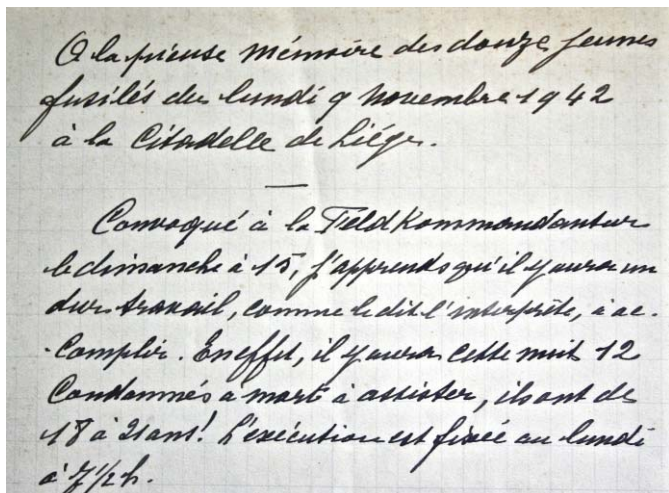 A la pieuse mémoire des douze jeunes
fusilés du lundi 9 novembre 1942
à la Citadelle de Liége.
Convoqué à la Feldkommandantur
le dimanche à 15, j'apprends qu'il y aura un
dur travail, comme le dit l'interprète, à ac-
complir. En effet, il y aura cette nuit 12
Condamnés à mort à assister, ils ont de
18 à 21 ans! L'exécution est fixée au lundi
à 7 1/2 h.